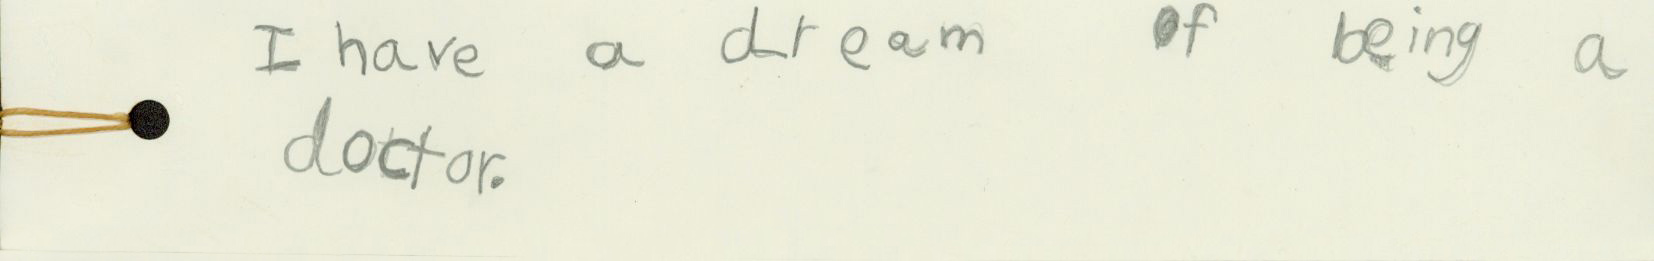 I have a dream of being a
doctor.